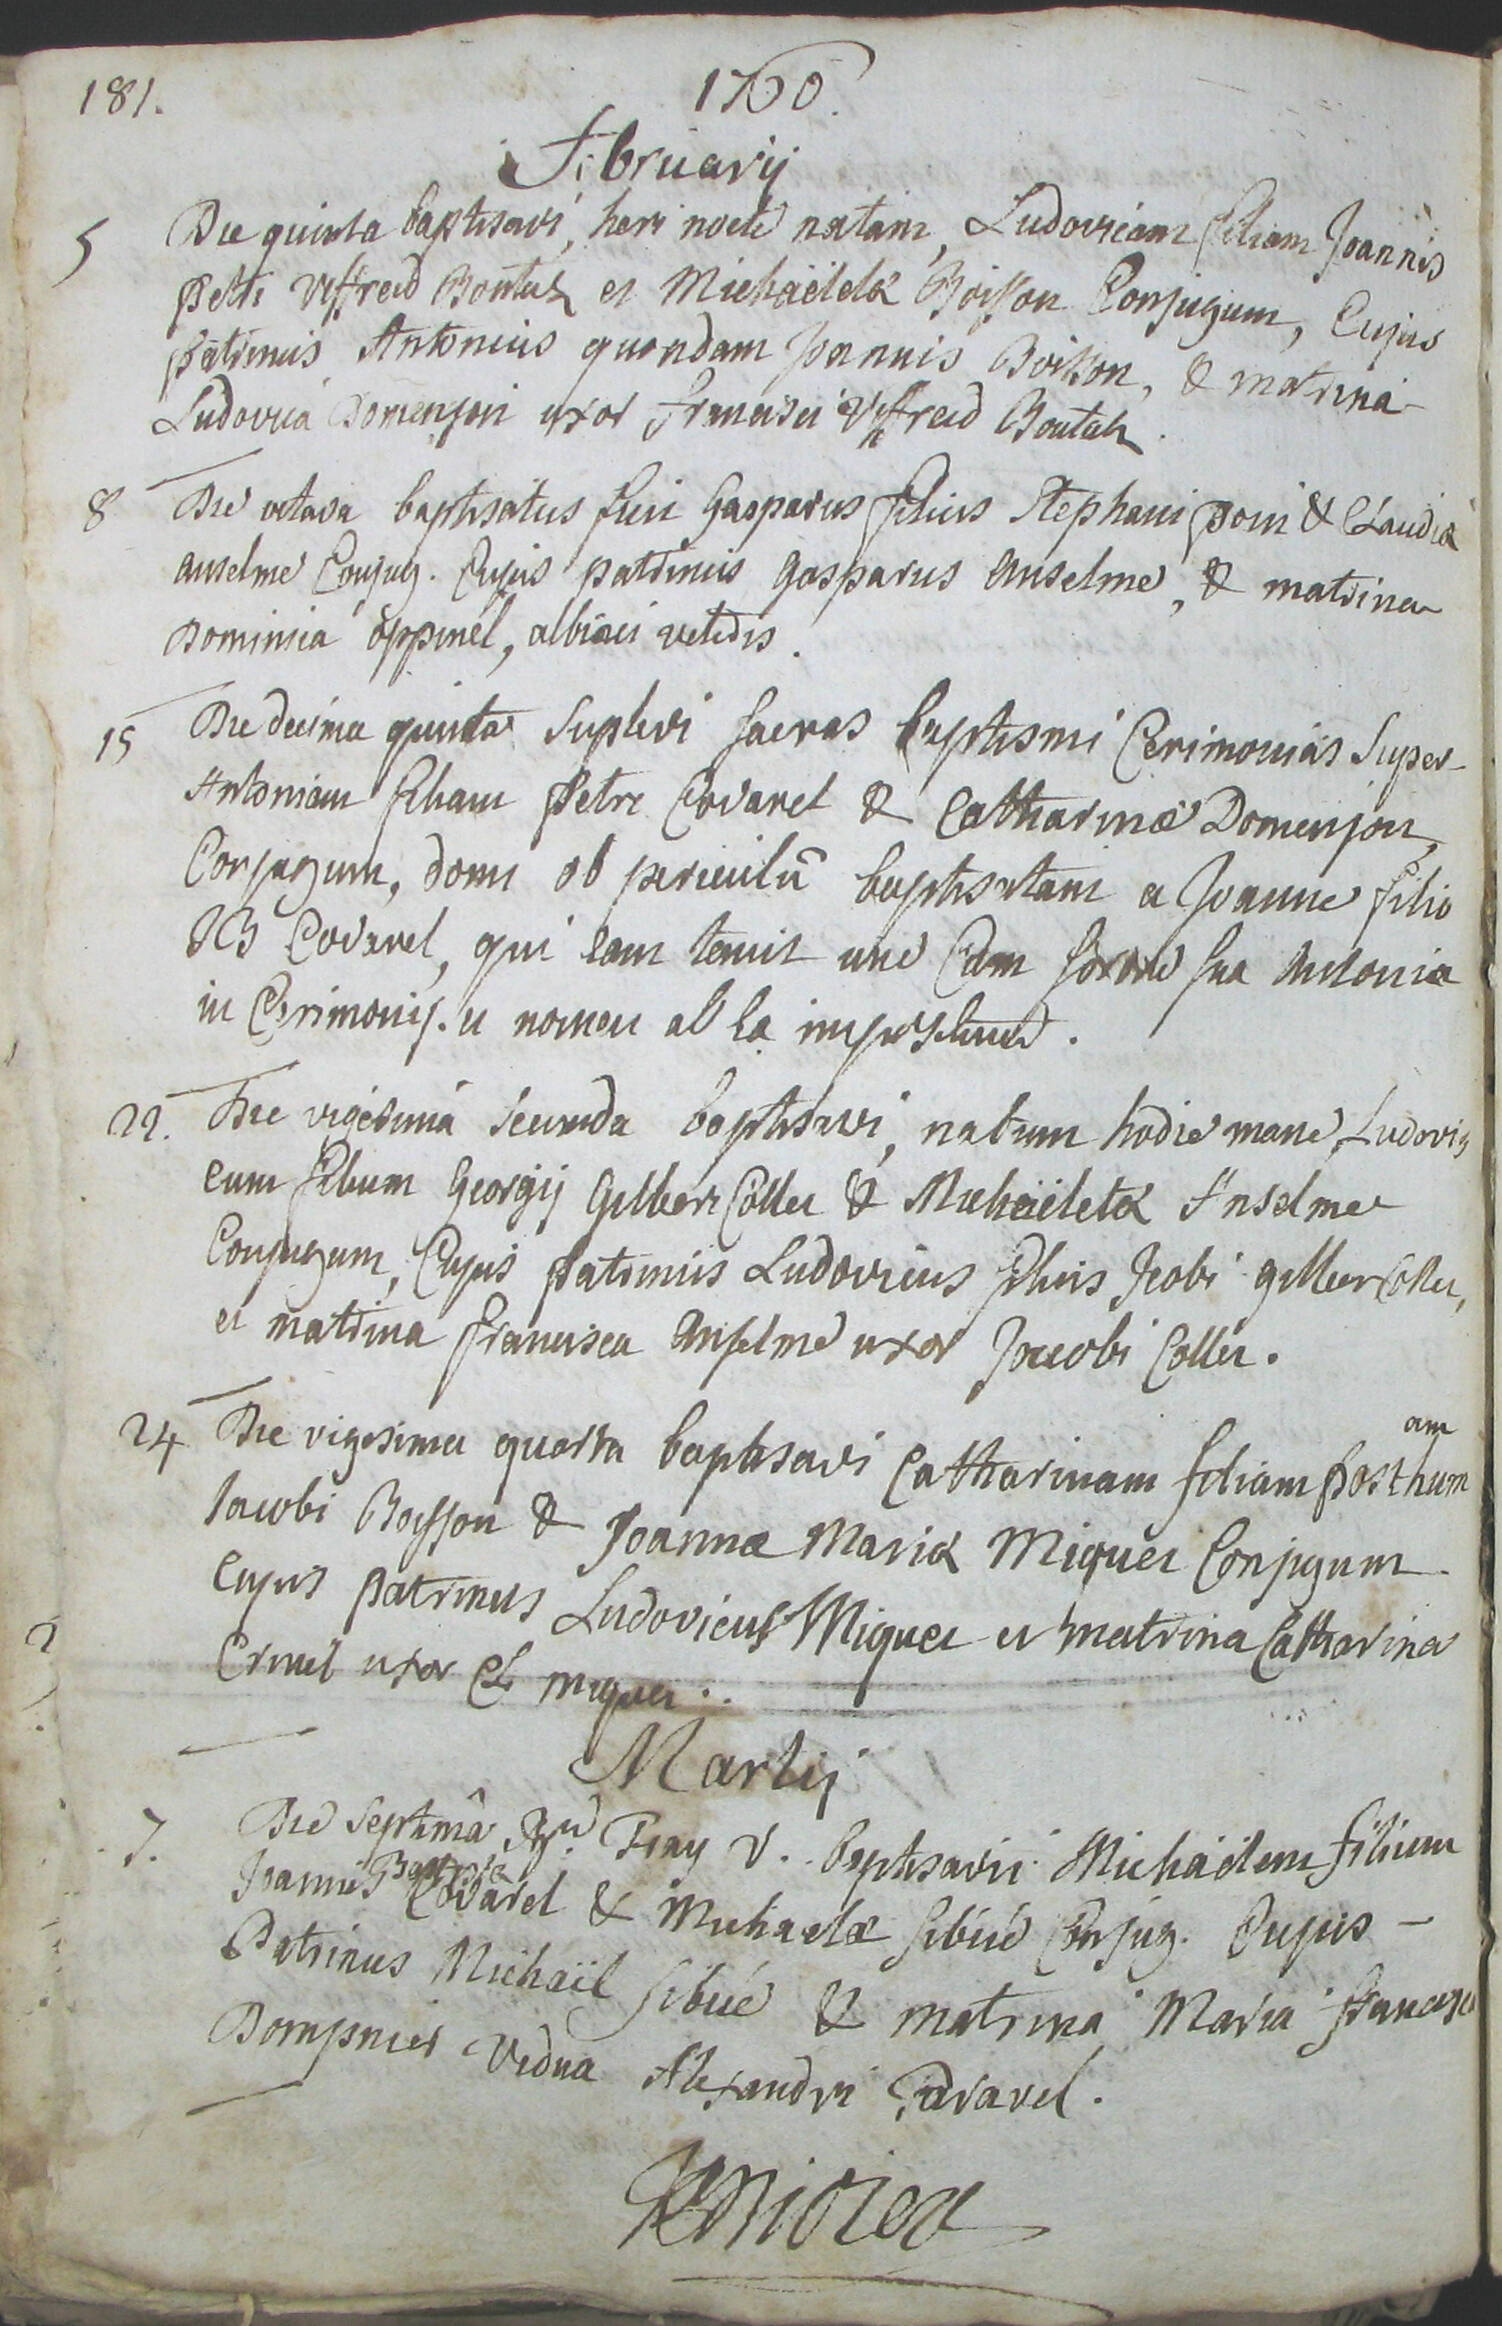 181.
1760.
Februarij
5 Die quinta baptisavi, heri nocte natam, Ludovicam filiam Joannis
Petri Uffreid Boutal et Michaëletæ Boisson Conjugum, Cujus
patrinus Antonius quondam Joannis Boisson, & matrina
Ludovica Domenjon uxor Francisci Uffreid Boutal.
8 Die octava baptisatus fuit Gasparus filius Stephani & Claudiæ
Anselme Conjug. Cujus patrinus Gasparus Anselme, & matrina
Dominica oppinel, albiaci veteris.
15 Die decima quinta Suplevi Sacras baptismi Cerimonias Super
Antoniam filiam Petri Covarel & Catharinæ Domenjon
Conjugum, domi ob periculū baptisatam a Joanne filio
JB Covarel, qui eam tenuit una Cum sorore sua Antonia
in Cerimonijs. et nomen ab ea
22. Die vigesimâ Secunda baptisavi, natum hodie mane, Ludovi
cum filium Georgij Gilbert Collet & Michaëletæ Anselme
Conjugum, Cujus patrinus Ludovicus filius Jcobi gilbert Collet,
et matrina Francisca Anselme uxor Jacobi Collet.
24 Die vigesima quarta baptisavi Catharinam filiam posthumam
Jacobi Boisson & Joannæ Mariæ Miquet Conjugum
Cujus patrinus Ludovicus Miquet et matrina Catharina
uxor Miquet..
Martij
7. Die Septimâ Fray V. baptisavit Michaëlem filium
Joannis Baptistæ Covarel & Michaelæ Sibué Conjug. Cujus -
Patrinus Michaïl Sibué & matrina Maria Francisca
Dompnier Vidua Alexandri Covarel.